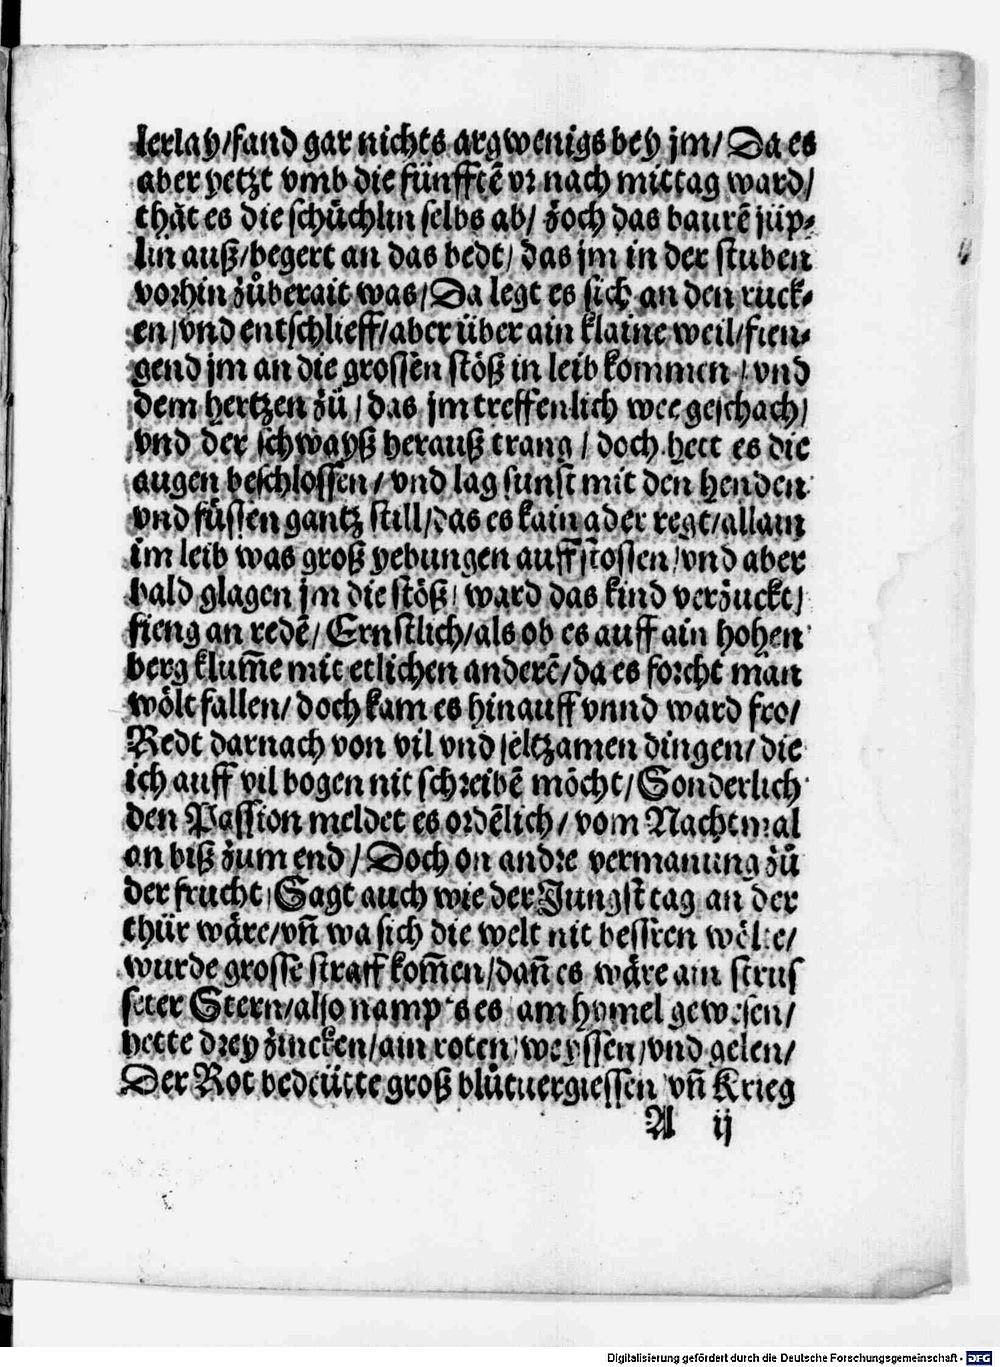 lerlay/fand gar nichts argwenigs bey jm/Da es
aber yetzt vmb die fünfftē vr nach mittag ward/
thät es die schüchlin selbs ab/ zoch das baurē jüp⸗
lin auß/begert an das bedt/ das jm in der stuben
vorhin zůberait was/Da legt es sich an den ruck⸗
en/vnd entschlieff/aber über ain klaine weil/fien⸗
gend jm an die grossen stöß in leib kommen / vnd
dem hertzen zů / das jm treffenlich wee geschach/
vnd der schwayß herauß trang / doch hett es die
augen beschlossen/ vnd lag sunst mit den henden
vnd füssen gantz still/das es kain ader regt/allain
im leib was groß yebungen auffstossen/vnd aber
bald glagen jm die stöß/ ward das kind verzuckt/
fieng an redē/ Ernstlich/als ob es auff ain hohen
berg klum̄e mit etlichen anderē/da es forcht man
wölt fallen/ doch kam es hinauff vnnd ward fro/
Redt darnach von vil vnd seltzamen dingen/ die
ich auff vil bogen nit schreibē möcht/Sonderlich
den Passion meldet es ordēlich/ vom Nachtmal
an biß zum end/Doch on andre vermanung zů
der frucht/Sagt auch wie der Jungst tag an der
thür wäre/vn̄ wa sich die welt nit bessren wölte/
wurde grosse straff kom̄en/dan̄ es wäre ain strus
seter Stern/also namp's es/ am hymel gewesen/
hette drey zincken/ain roten/weyssen/vnd gelen/
Der Rot bedeütte groß blůtuergiessen vn̄ Krieg
A ij
Digitalisierung gefördert durch die Deutsche Forschungsgemeinschaft - DFG